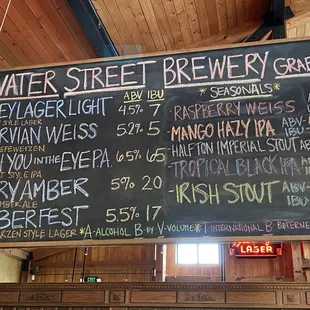 WATER STREET BREWERY GRAF
ABV IBU
*SEASONALS*
EY LAGER LIGHT 4.5% 7
STYLE LAGER
RASPBERRY WEISS ABV
IBU
RVIAN WEISS 5.2% 5
MANGO HAZY IPA ABV
IBU
YOU IN THE EYE PA 6.5% 65
HALF TON IMPERIAL STOUT AB
ST STYLE IPA
TROPICAL BLACK IPA ABV
IBU
RY AMBER 5% 20
AMBER ALE
IRISH STOUT ABV
IBU
BERFEST 5.5% 17
RZEN STYLE LAGER
*A-ALCOHOL B-BY V-VOLUME* I-INTERNATIONAL B BITTERNE
LASER